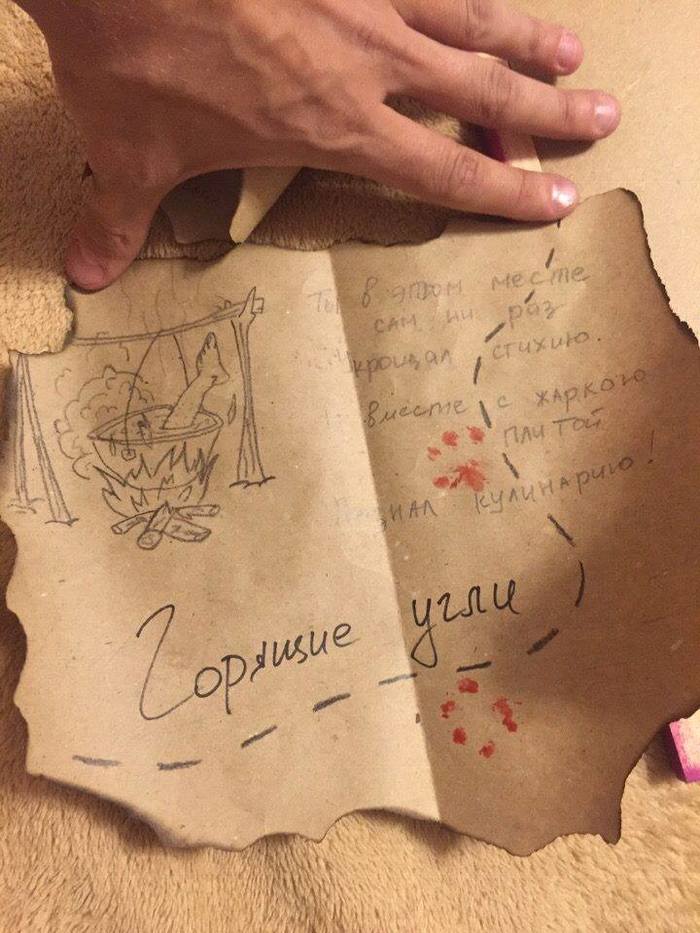 Ты в этом месте
сам ни раз
Укрощал стихию.
вместе с жаркою
плитой
Познал кулинарию!
Горящие угли